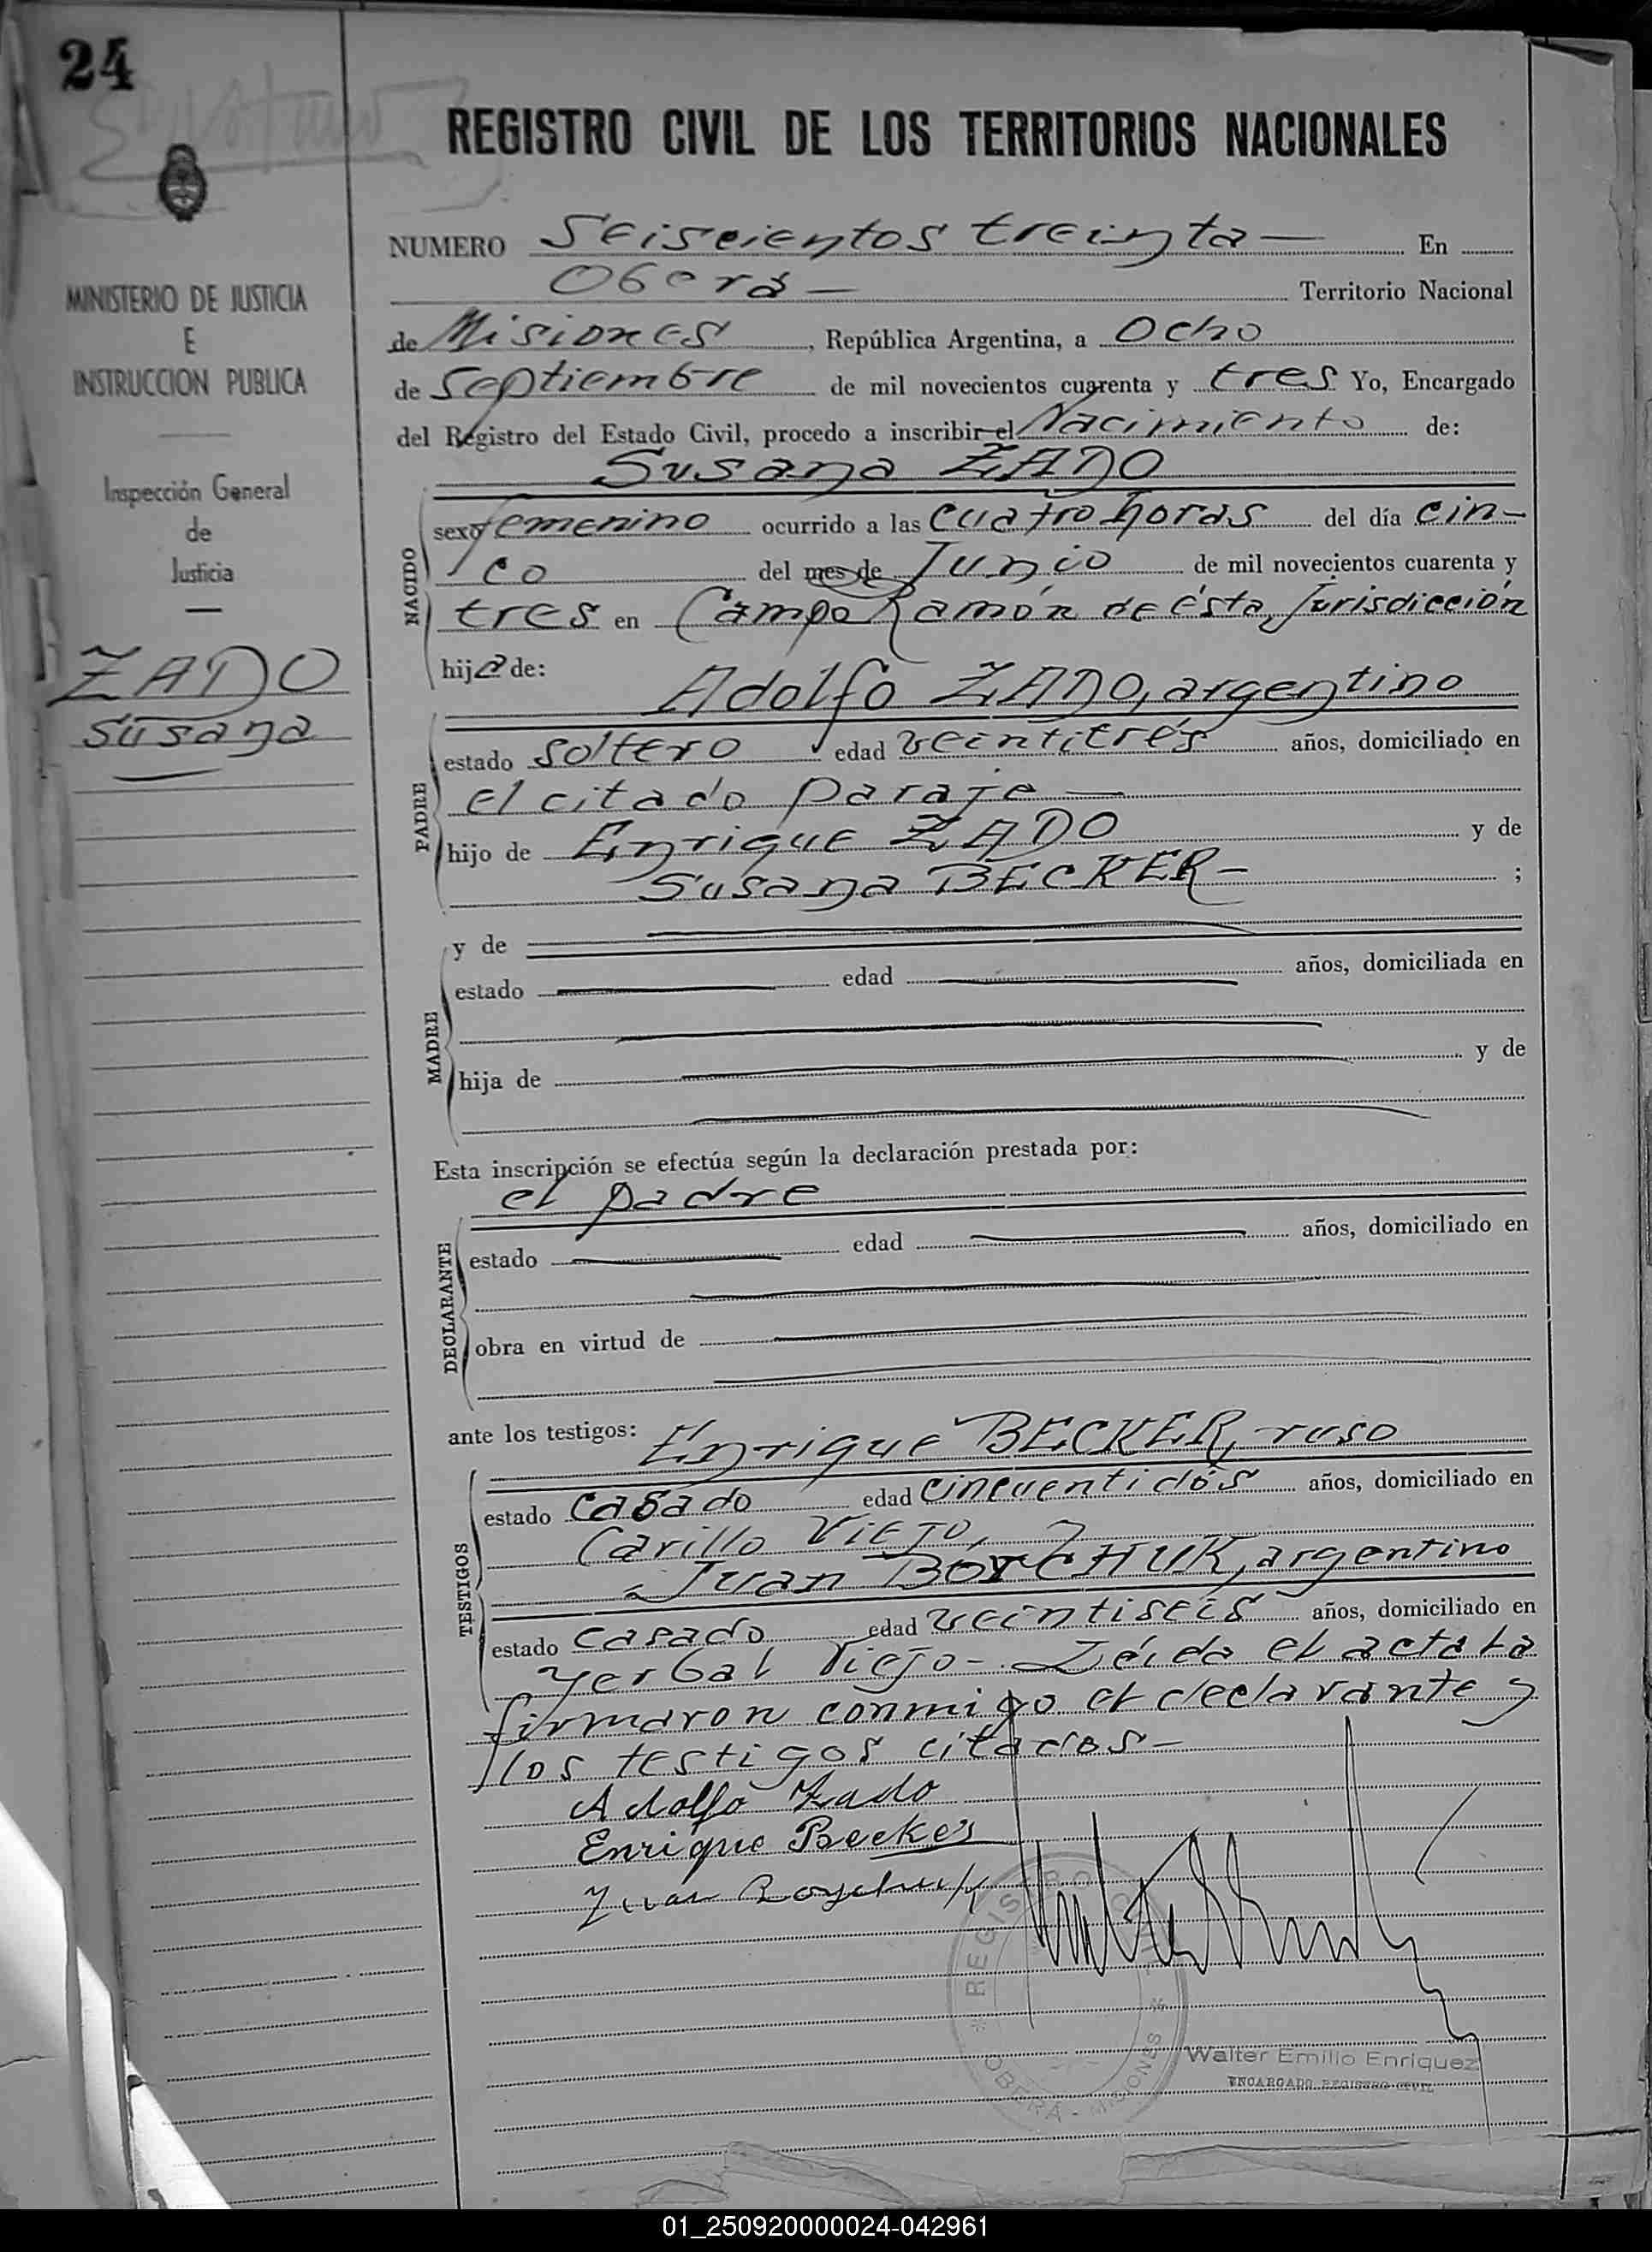 24
MINISTERIO DE JUSTICIA
E
INSTRUCCION PUBLICA
Inspección General
de
Justicia
ZADO
Susana
REGISTRO CIVIL DE LOS TERRITORIOS NACIONALES
NUMERO Seiscientos treinta — En
Oberá — Territorio Nacional
de Misiones, República Argentina, a Ocho
de Septiembre de mil novecientos cuarenta y tres Yo, Encargado
del Registro del Estado Civil, procedo a inscribir el Nacimiento de:
Susana ZADO
NACIDO
sexo femenino ocurrido a las cuatro horas del día cin-
co del mes de Junio de mil novecientos cuarenta y
tres en Campo Ramón de ésta Jurisdicción
hija de:
Adolfo ZADO, argentino
PADRE
estado soltero edad veintitrés años, domiciliado en
el citado paraje —
hijo de Enrique ZADO y de
Susana BECKER - ;
MADRE
y de
estado edad años, domiciliada en
hija de y de
Esta inscripción se efectúa según la declaración prestada por:
el padre
DECLARANTE
estado edad años, domiciliado en
obra en virtud de
ante los testigos: Enrique BECKER, ruso
TESTIGOS
estado casado edad cincuentidós años, domiciliado en
Carillo Viejo, y
Juan argentino
estado casado edad veintiseis años, domiciliado en
Yerbal Viejo - Leída el acta la
firmaron conmigo el declarante y
los testigos citados -
Adolfo Zado
Enrique Becker
Juan
REGISTRO
OBERÁ - MISIONES
Walter Emilio Enriquez
ENCARGADO REGISTRO CIVIL
01_250920000024-042961